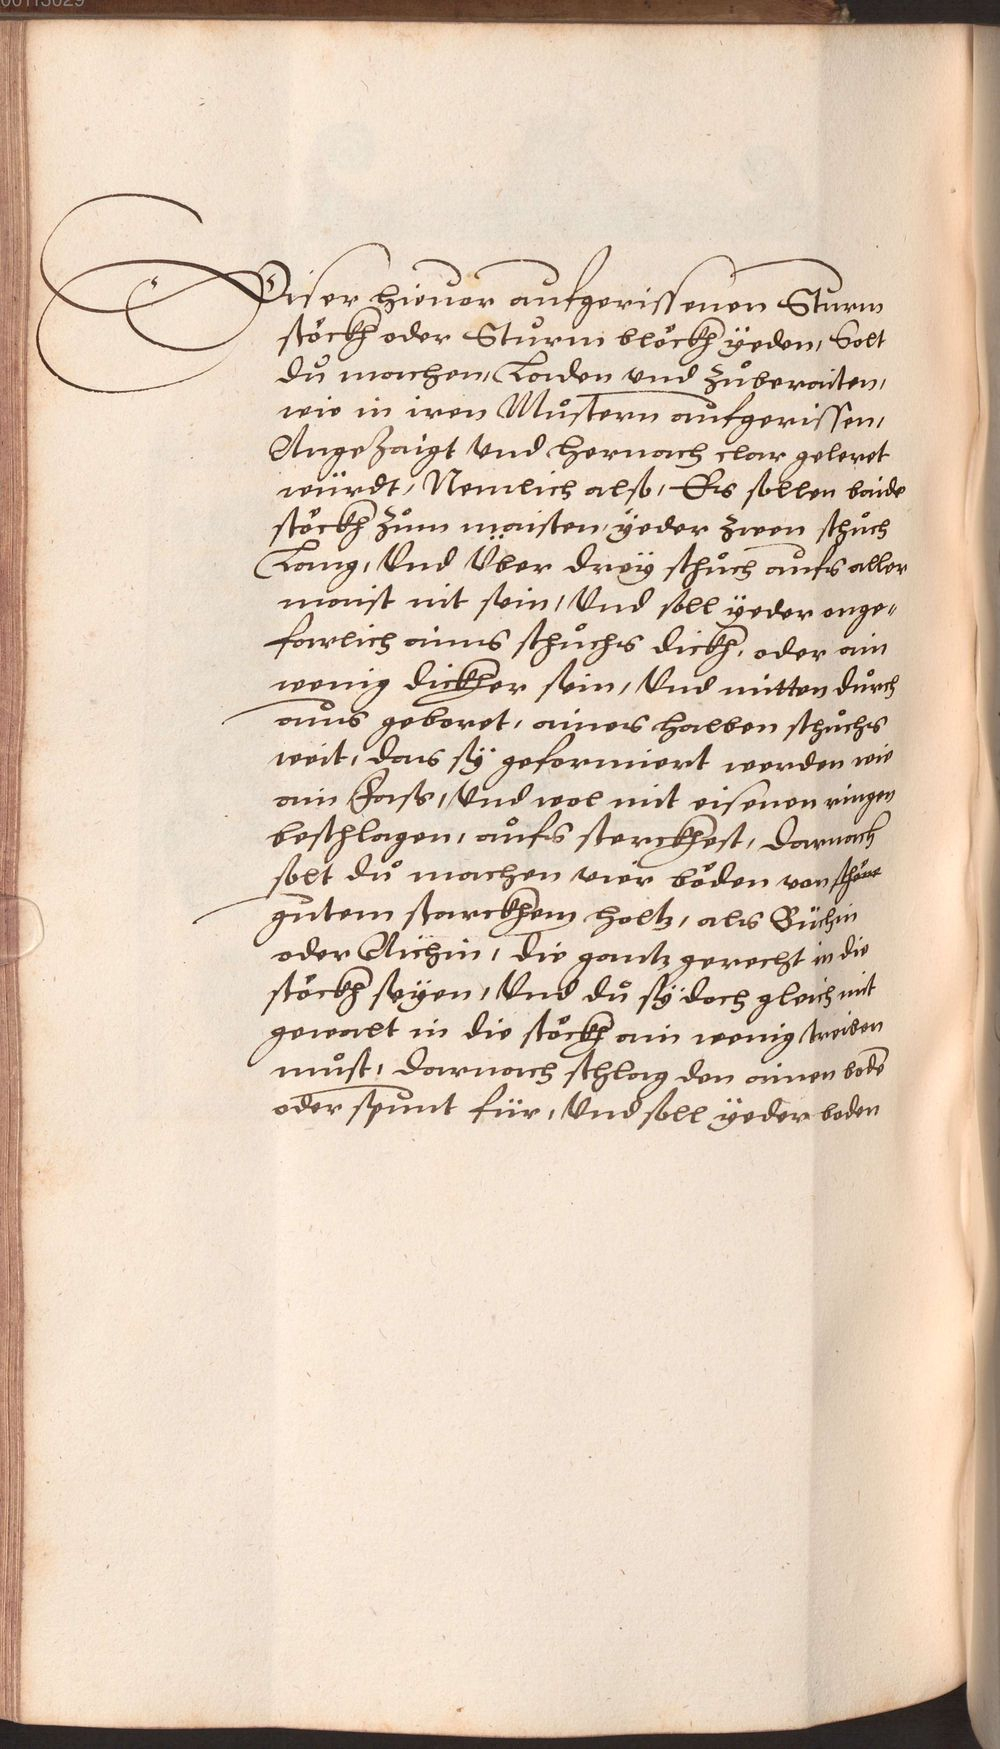 Diser hieuor aufgerissenen Sturm
stöckh oder Sturm blöckh yeden, Solt
dů machen, Laden vnd Zůberaiten,
wie in iren Můstern aufgerissen,
AngeZaigt vnd hernach clar geleret
würdt, Nemlich also, Es sollen baide
stöckh Zům maisten, yeder Zwen schůch
Lang, Vnd Über drey schůch aufs aller
maist nit sein, Vnd soll yeder onge-
farlich ains schůchs dickh, oder ain
wenig dickher sein, Vnd mitten důrch
aůs geboret, aines halben schůchs
weit, das sy geformiert werden wie
ain Fass, Vnd wol mit eisenen ringen
beschlagen, aůfs sterckhest, Darnach
solt dů machen vier böden von schöne
gůtem starckhem holtz, als Büchin
oder Aichin, die gantz gerecht in die
stöckh seyen, Vnd dů sy doch gleich mit
gewalt in die stöckh ain wenig treiben
můst, Darnach schlag den ainen bodē
oder spunt für, Vnd soll yeder boden